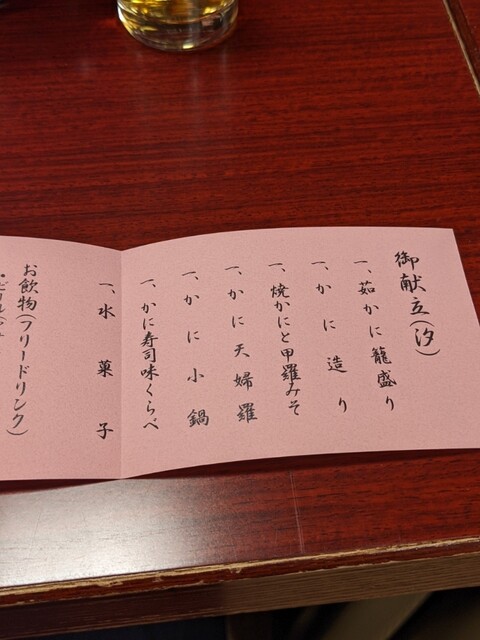 御献立(汐)
一、茹かに籠盛り
一、かに造り
一、焼かにと甲羅みそ
一、かに天婦羅
一、かに小鍋
一、かに寿司味くらべ
一、水菓子
お飲物(フリードリンク)